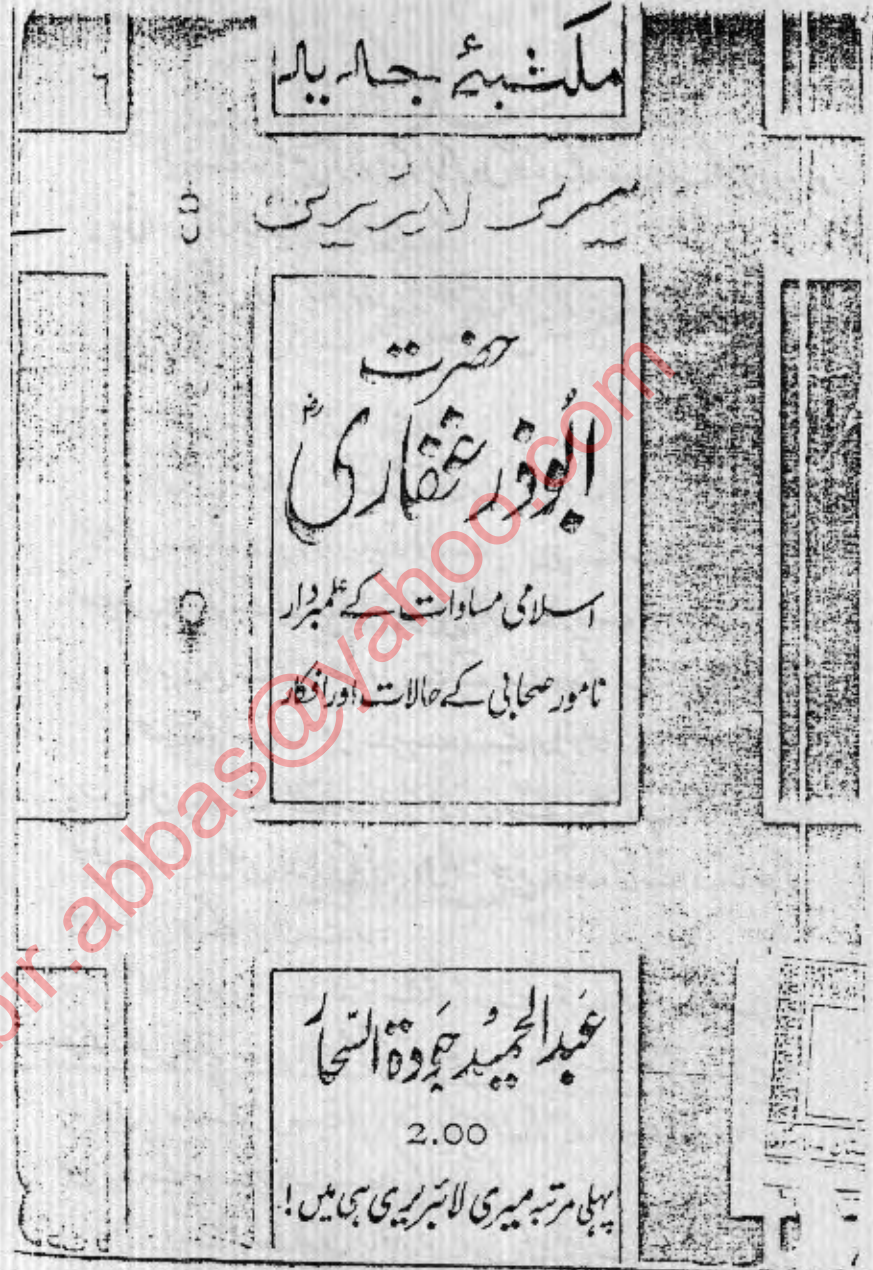 مکتبۂ جدید
میری لائبریری
حضرت
ابوذر غفاریؓ
اسلامی مساوات کے علمبردار
نامور صحابی کے حالات اور افکار
عبدالحمید جودۃ السحار
2.00
پہلی مرتبہ میری لائبریری ہی میں!
abir.abbas@yahoo.com